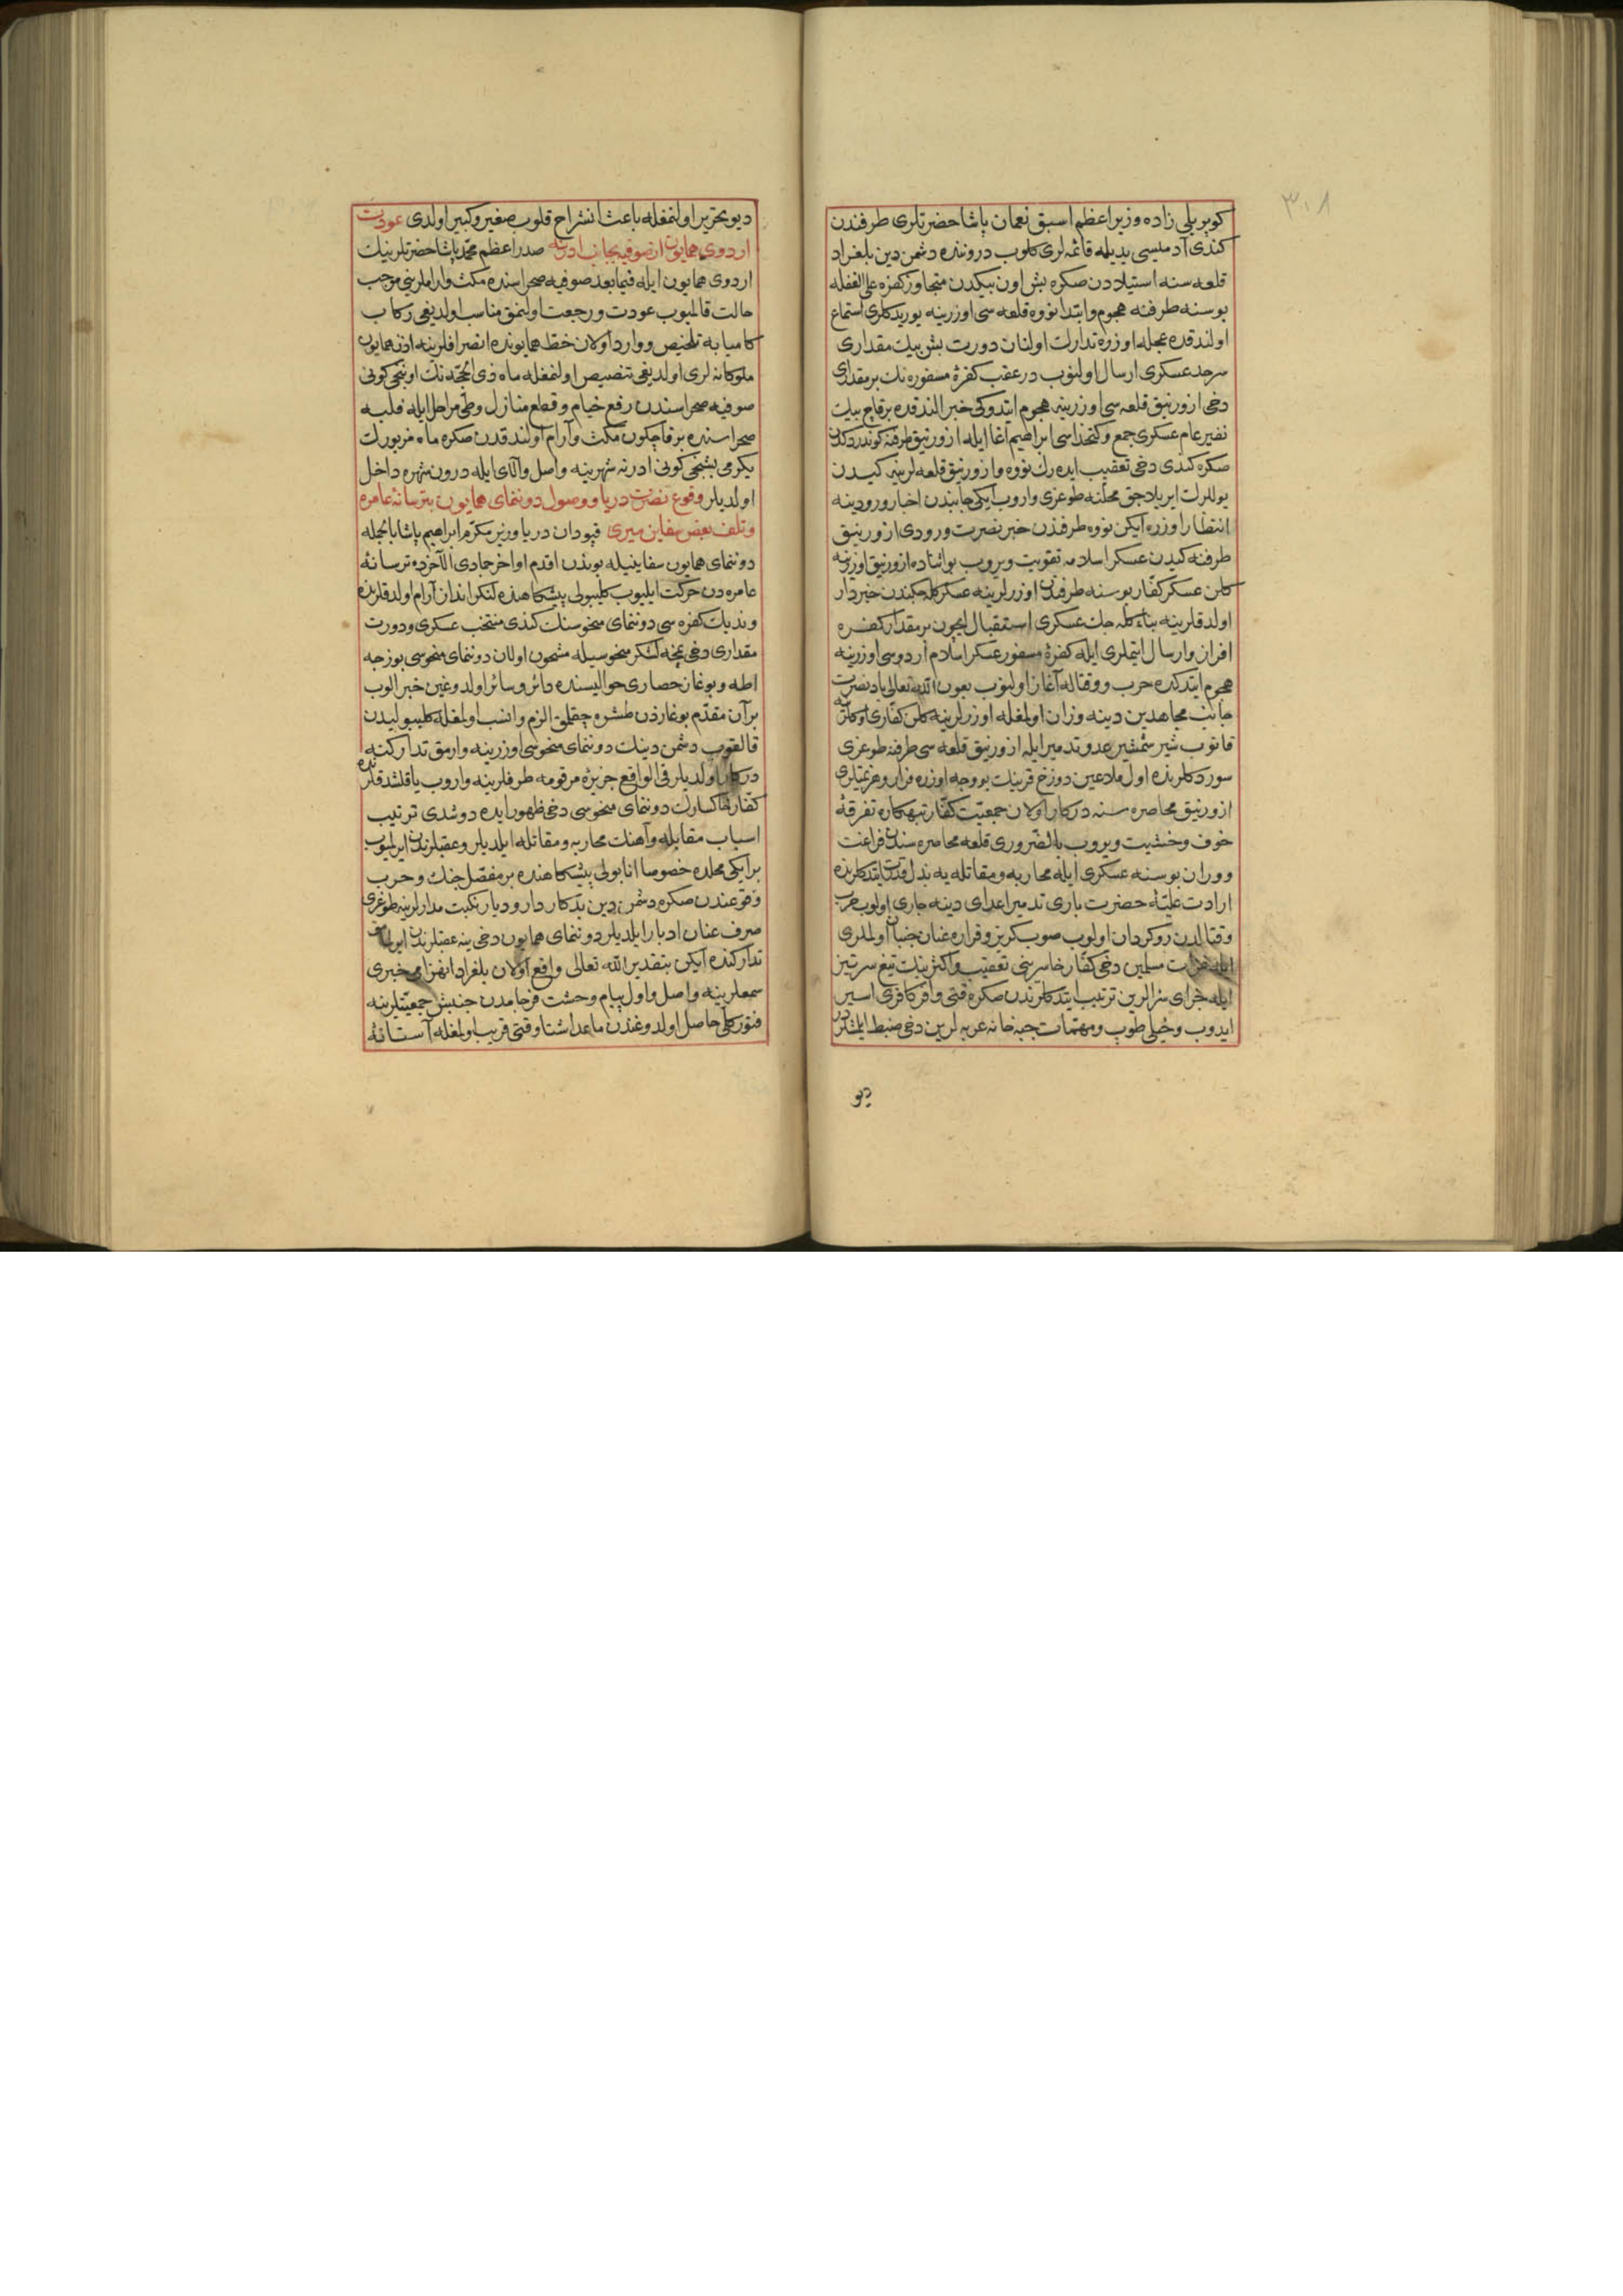 ٣٠٨
كوپريلی زاده وزير اعظم اسبق نعمان پاشا حضرتلری طرفندن
كندی آدمیسی یدیله قائمه لری كلوب دروننده دشمن دین بلغراد
قلعه سنه استیلادن صكره بش اون بیكدن متجاوز كفره علی الغفله
بوسنه طرفنه هجوم و ابتدا نووه قلعه سی اوزرینه یوریدكلری استماع
اولندقده عجله اوزره تدارك اولنان دورت بش بیك مقداری
سرحد عسكری ارسال اولنوب در عقب كفرهٔ مسفوره نك بر مقداری
دخی ازورنیق قلعه سی اوزرینه هجوم ایتدوكی خبر الندقده بر قاچ بیك
نفیر عام عسكری جمع و كتخداسی ابراهیم آغا ایله ازورنیق طرفنه كوندردكدن
صكره كندی دخی تعقیب ایده رك نووه و ازورنیق قلعه لرینه كیدن
یوللرك ایریلاجق محلنه طوغری واروب ایكی جانبدن اخبار ورودینه
انتظار اوزره ایكن نووه طرفندن خبر نصرت ورودی ازورنیق
طرفنه كیدن عسكر اسلامه تقویت ویروب بو اثناده ازورنیق اوزرینه
كلن عسكر كفار بوسنه طرفندن اوزرلرینه عسكر كله جكندن خبردار
اولدقلرینه بناء كله جك عسكری استقبال ایچون بر مقدار كفره
افراز و ارسال ایتملری ایله كفرهٔ مسفور عسكر اسلام اردوسی اوزرینه
هجوم ایتدكده حرب و قتاله آغاز اولنوب بعون الله تعالی باد نصرت
جانب مجاهدین دینه وزان اولمغله اوزرلرینه كلن كفاری اوكلرینه
قاتوب شیر شمشیر عدو تدمیر ایله ازورنیق قلعه سی طرفنه طوغری
سوردكلرنده اول ملاعین دوزخ قرینك بو وجه اوزره فرار و هزیمتلری
ازورنیق محاصره سنه دركار اولان جمعیت كفار تبهكاره تفرقهٔ
خوف و خشیت ویروب بالضروری قلعه محاصره سندن فراغت
و وران بوسنه عسكری ایله محاربه و مقاتله یه بذل قدرت ایتدكلرنده
ارادت علیهٔ حضرت باری تدمیر اعدای دینه جاری اولوب حرب
و قتالدن روكردان اولوب صوب كریز و فراره عنان جنبان اولملری
ایله غزات مسلمین دخی كفار خاسرینی تعقیب و اكثرینك تیغ سرتیز
ایله جزای سزالرین ترتیب ایتدكلرندن صكره قتی وافر كافری اسیر
ایدوب و خیلی طوپ و مهمات جبه خانه عربه لرین دخی ضبط ایلمشلردر
دیو
دیو تحریر اولنمغله باعث انشراح قلوب صغیر و كبیر اولدی عودت
اردوی همایون از صوفیه بجانب ادرنه صدر اعظم محمد پاشا حضرتلرینك
اردوی همایون ایله فیما بعد صوفیه صحراسنده مكث و آراملرینی موجب
حالت قالمیوب عودت و رجعت اولنمق مناسب اولدیغی ركاب
كامیابه تلخیص و وارد اولان خط همایونده انصرافلرینه اذن همایون
ملوكانه لری اولدیغی تنصیص اولنمغله ماه ذی الحجه نك اوننجی كونی
صوفیه صحراسندن رفع خیام و قطع منازل و طی مراحل ایله فلبه
صحراسنده بر قاچ كون مكث و آرام اولندقدن صكره ماه مزبورك
یكرمی بشنجی كونی ادرنه شهرینه واصل و آلای ایله درون شهره داخل
اولدیلر وقوع نصرت دریا و وصول دوننمای همایون بترسانهٔ عامره
و تلف بعض سفاین میری قپودان دریا وزیر مكرم ابراهیم پاشا بالجمله
دوننمای همایون سفاینیله بوندن اقدم اواخر جمادی الآخرده ترسانهٔ
عامره دن حركت ایلیوب كلیبولی پیشكاهنده لنكر انداز آرام اولدقلرنده
وندیك كفره سی دوننمای منحوسنك كندی منتخب عسكری و دورت
مقداری دخی نمچه لشكر منحوسیله مشحون اولان دوننمای منحوسی بوزجه
اطه و بوغاز حصاری حوالیسنده دائر و سائر اولدوغین خبر الوب
بر آن مقدم بوغازدن طشره چقلمق الزم و انسب اولمغله كلیبولیدن
قالقوب دشمن دینك دوننمای منحوسی اوزرینه وارمق تداركنه
دركار اولدیلر فی الواقع جزیرهٔ مرقومه طرفلرینه واروب یاقلشدقلرنده
كفار خاكسارك دوننمای منحوسی دخی ظهور ایده دوشدی ترتیب
اسباب مقابله و آهنك محاربه و مقاتله ایلدیلر و عقبلرندن ایرلمیوب
بر ایكی محلده خصوصا انابولی پیشكاهنده بر مفصل جنك و حرب
وقوعندن صكره دشمن دین بدكار دار و دیار نكبت مدارلرینه طوغری
صرف عنان ادبار ایلدیلر دوننمای همایون دخی ینه عقبلرندن ایرلمامق
تداركنده ایكن بتقدیر الله تعالی واقع اولان بلغراد انهزامی خبری
سمعلرینه واصل و اول پیام وحشت فرجامدن جنبش جمعیتلرینه
فتور كلی حاصل اولدوغندن ماعدا شتا وقتی قریب اولمغله آستانهٔ